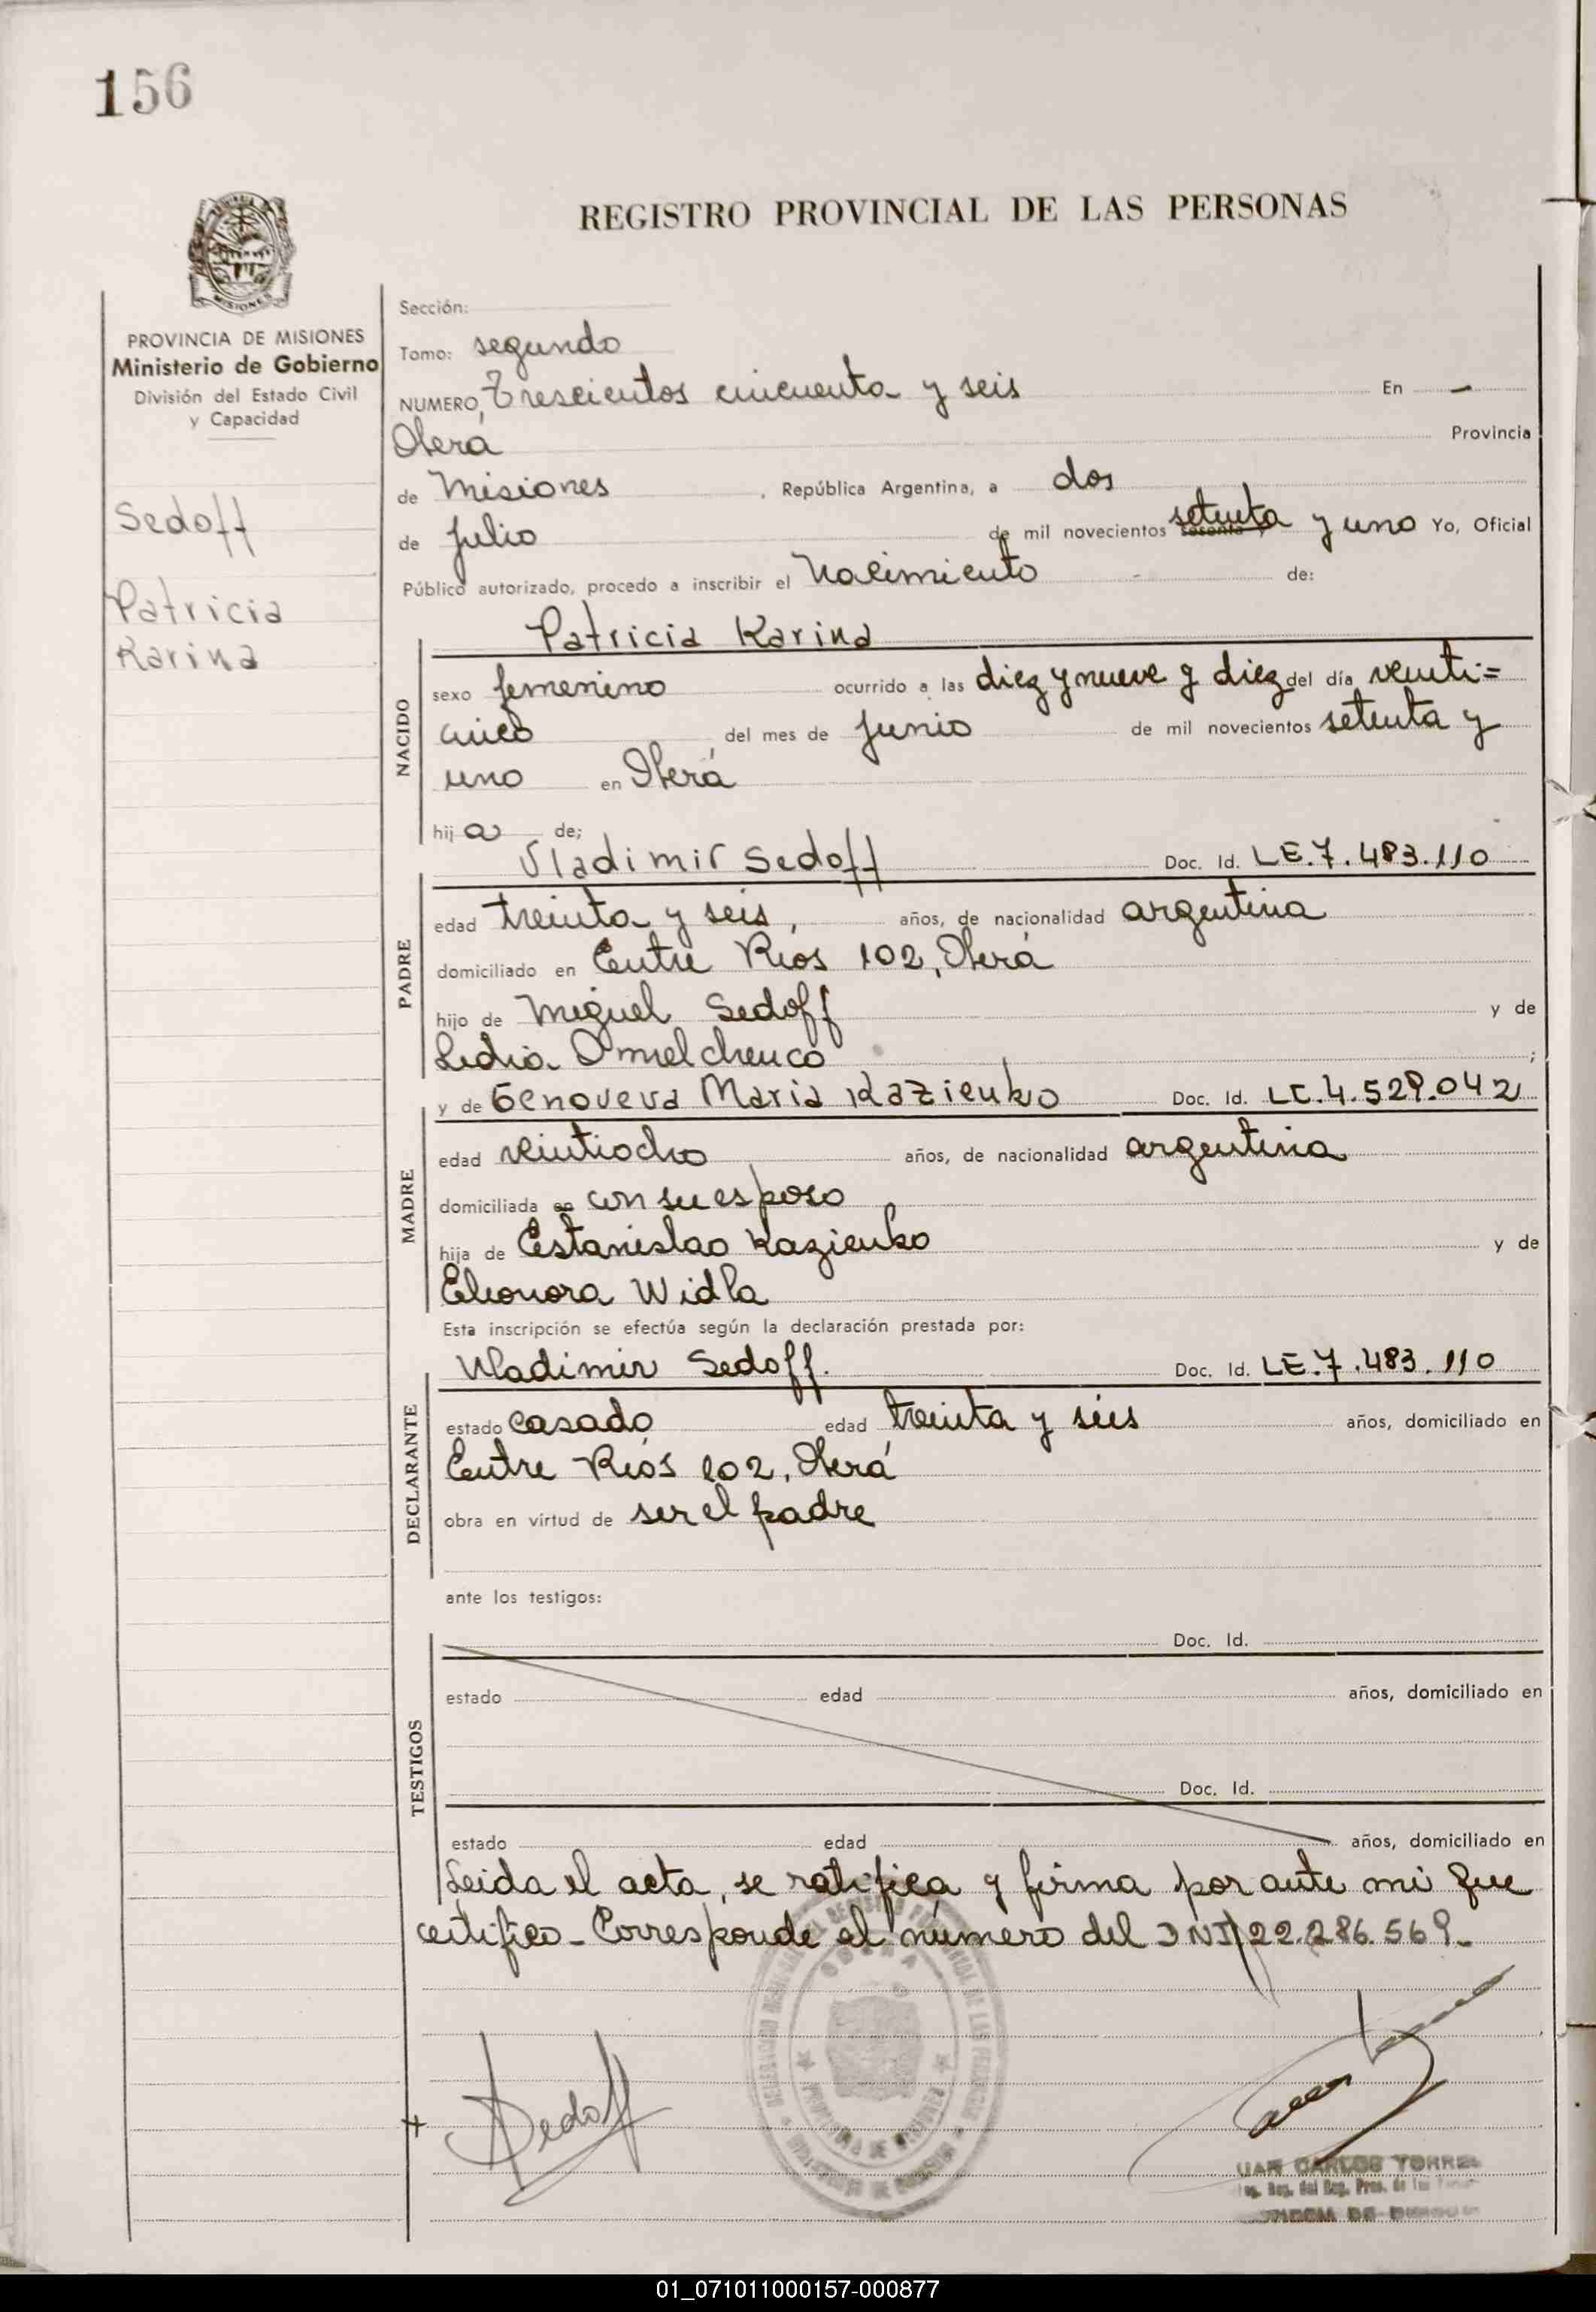 156
REGISTRO PROVINCIAL DE LAS PERSONAS
MISIONES
PROVINCIA DE MISIONES
Ministerio de Gobierno
División del Estado Civil
y Capacidad
Sedoff
Patricia
Karina
Sección:
Tomo: segundo
NUMERO, Trescientos cincuenta y seis En —
Oberá Provincia
de Misiones, República Argentina, a dos
de julio de mil novecientos setenta y uno Yo, Oficial
Público autorizado, procedo a inscribir el Nacimiento de:
NACIDO
Patricia Karina
sexo femenino ocurrido a las diez y nueve y diez del día veinti=
cinco del mes de junio de mil novecientos setenta y
uno en Oberá
hija de;
PADRE
Vladimir Sedoff Doc. Id. LE.7.483.110
edad treinta y seis, años, de nacionalidad argentina
domiciliado en Entre Ríos 102, Oberá
hijo de Miguel Sedoff y de
Lidia Omelchenco ;
MADRE
y de Genoveva Maria Kazienko Doc. Id. LC.4.529.042
edad veintiocho años, de nacionalidad argentina
domiciliada en con su esposo
hija de Estanislao Kazienko y de
Eleonora Widla
Esta inscripción se efectúa según la declaración prestada por:
DECLARANTE
Vladimir Sedoff. Doc. Id. LE.7.483.110
estado casado edad treinta y seis años, domiciliado en
Entre Ríos 102, Oberá
obra en virtud de ser el padre
ante los testigos:
TESTIGOS
Doc. Id.
estado edad años, domiciliado en
Doc. Id.
estado edad años, domiciliado en
Leida el acta, se ratifica y firma por ante mi que
certifico - Corresponde el número del DNI 22.286.569.-
Sedoff
UAN CARLOS TORRE
01_071011000157-000877